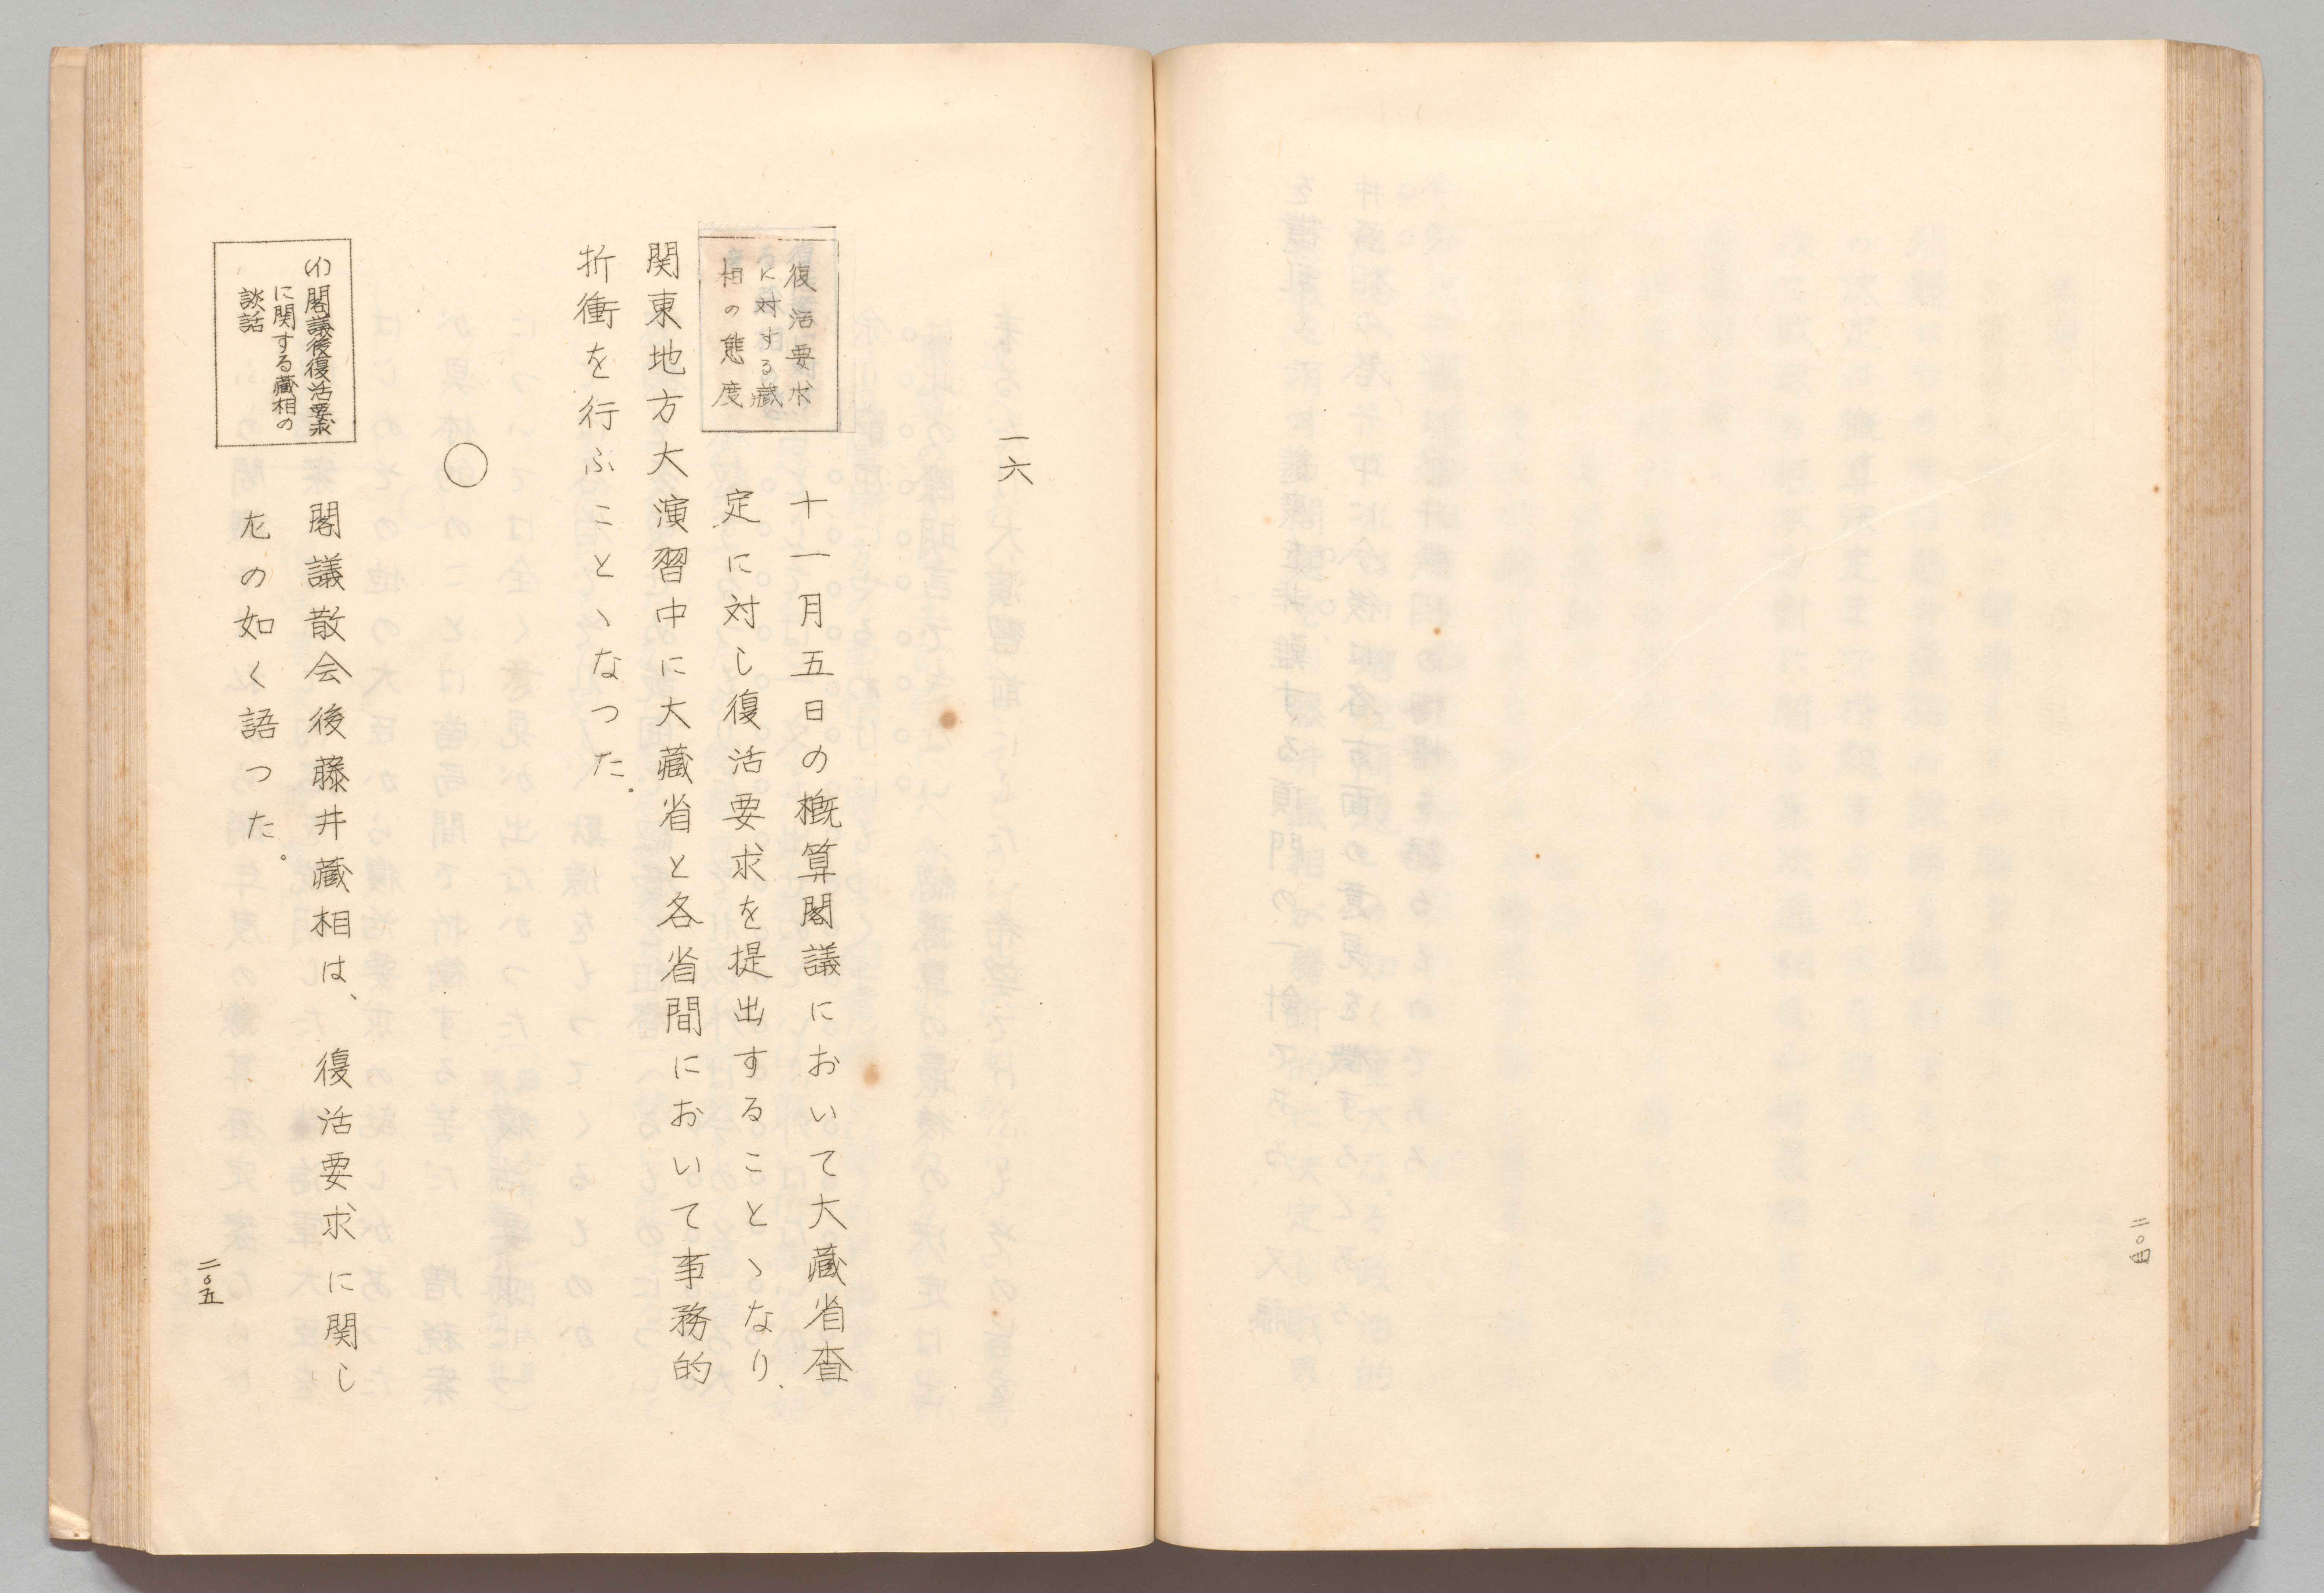 二〇四
一六
復活要求
に対する蔵
相の態度
十一月五日の概算閣議において大蔵省査
定に対し復活要求を提出することヽなり、
関東地方大演習中に大蔵省と各省間において事務的
折衝を行ふことヽなつた。
○
(イ)閣議後復活要求
に関する蔵相の
談話
閣議散会後藤井蔵相は、復活要求に関し
左の如く語つた。
二〇五